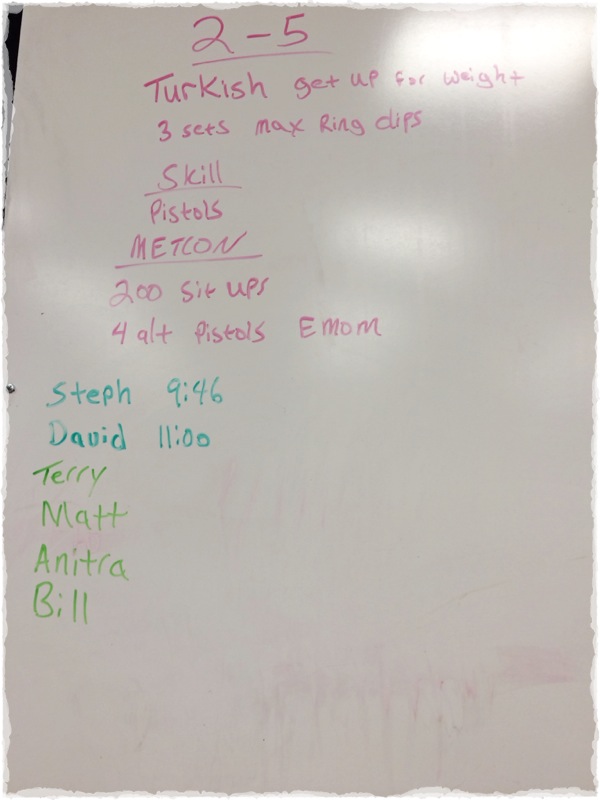 2-5
Turkish get up for weight
3 sets max Ring dips
Skill
Pistols
METCON
200 Sit ups
4 alt Pistols Emom
Steph 9:46
David 11:00
Terry
Matt
Anitra
Bill